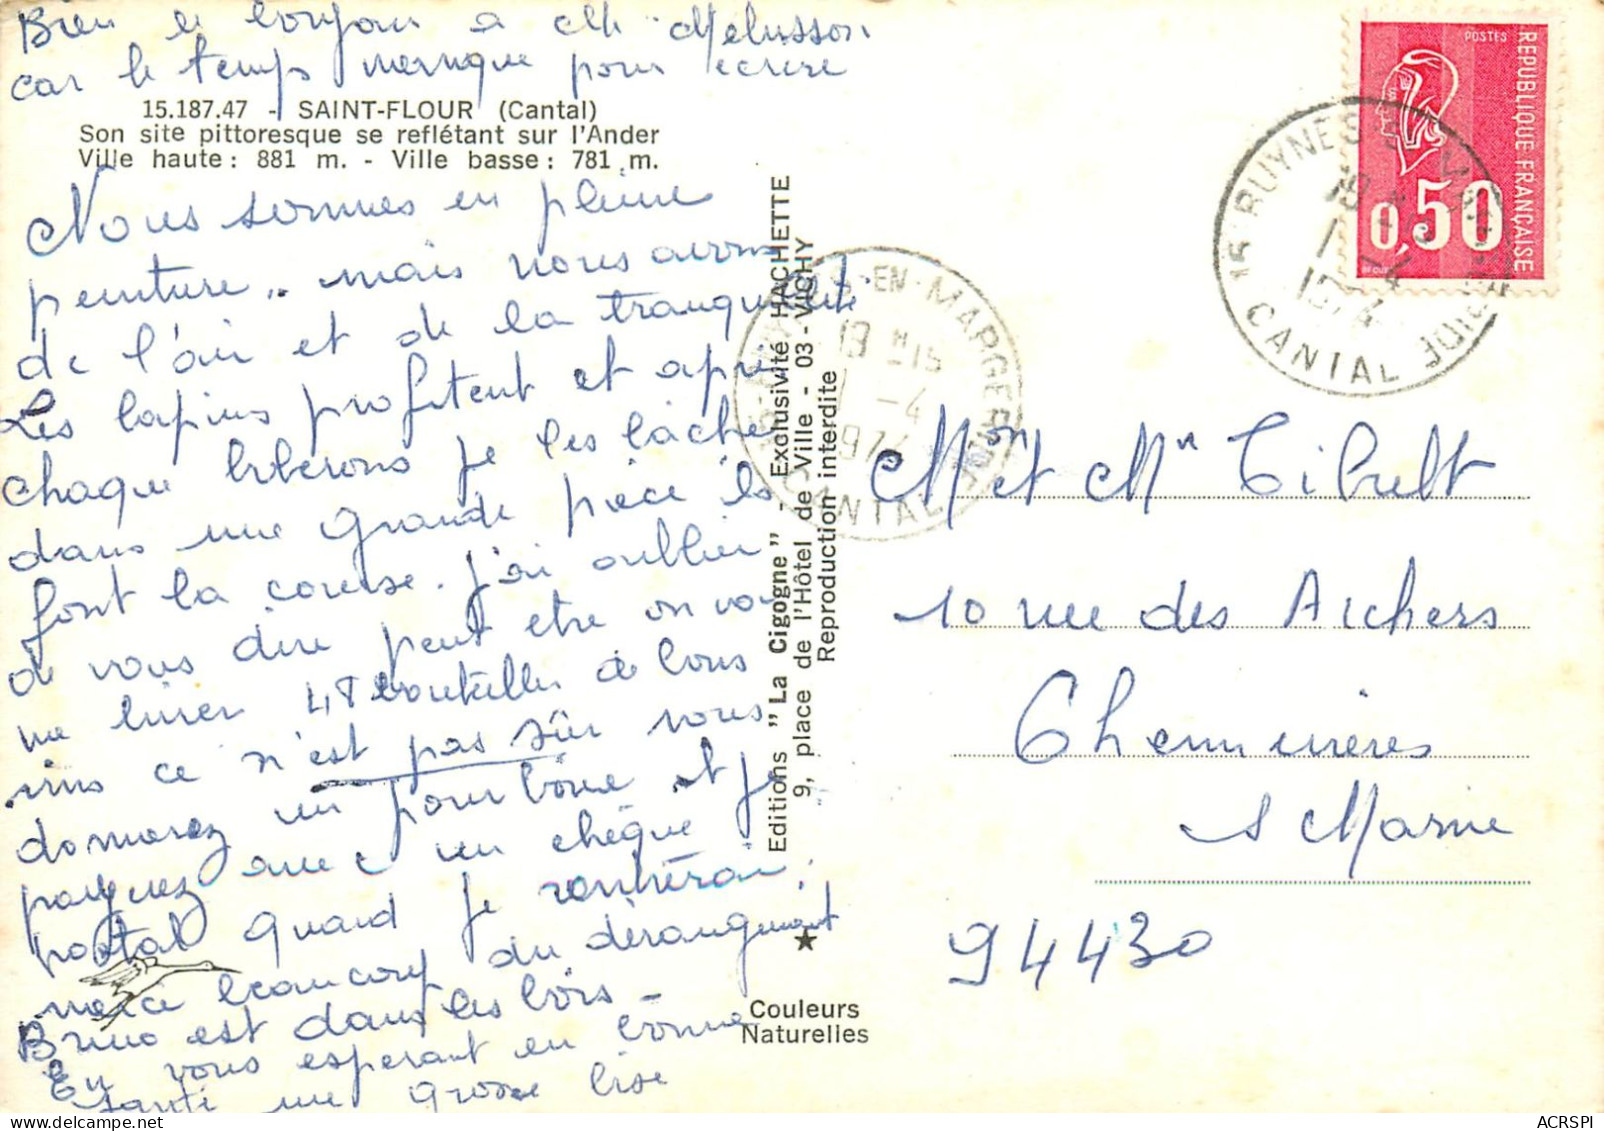 Bien le bonjour a Me Melusson
car le temps manque pour ecrire
15.187.47 - SAINT-FLOUR (Cantal)
Son site pittoresque se reflétant sur l'Ander
Ville haute : 881 m. - Ville basse : 781 m.
Nous sommes en pleine
peinture.. mais nous avons
de l'air et de la tranquilité
Les lapins profitent et après
chaque biberons je les lache
dans une grande pièce ils
font la course. j'ai oublier
de vous dire peut etre on vou
me livrer 48 bouteilles de
vins ce n'est pas sûr vous
donnerez un pourboire et je
payerez avec un chèque
postal quand je rentrerai.
merci beaucoup du dérangement
Bruno est dans les bois -
En vous esperant en bonne
santé une grosse bise
Editions "La Cigogne" - Exclusivité HACHETTE
9, place de l'Hôtel de Ville - 03 - VICHY
Reproduction interdite
Couleurs
Naturelles
POSTES
REPUBLIQUE FRANÇAISE
0,50
15 RUYNES-EN-MARGERIDE
CANTAL
13 H 15
1 - 4
1974
Mme et Mr Tibult
10 rue des Archers
Chennevières
s Marne
94430
ACRSPI